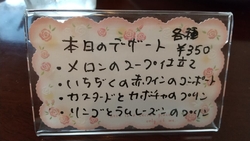 本日のデザート 各種 ¥350
・メロンのスープ仕立て
・いちぢくの赤ワインのコンポート
・カスタードとカボチャのプリン
・リンゴとラムレーズンのプリン